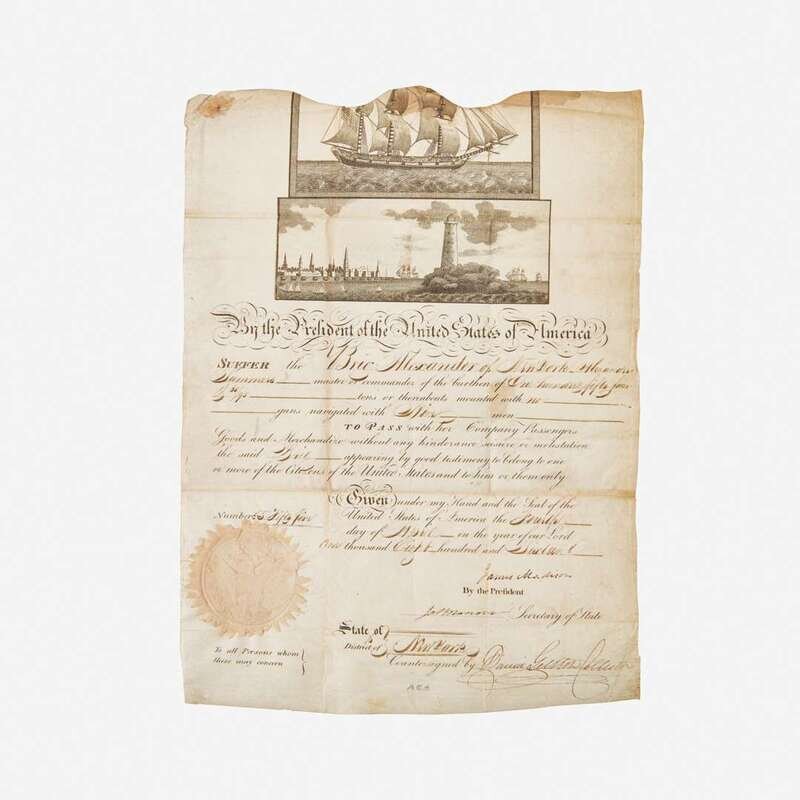 By the President of the United States of America
SUFFER the Brig Alexander of New York
Summers master or commander of the burthen of One hundred fifty four
tons or thereabouts mounted with no
guns navigated with men
TO PASS with her Company Passengers
Goods and Merchandize without any hinderance seisure or molestation
the said Brig appearing by good testimony to belong to one
or more of the Citizens of the United States and to him or them only
Given under my Hand and the Seal of the
Number Fifty five
United States of America the Fourth
day of April on the year of our Lord
One thousand Eight hundred and Sixteen
James Madison
By the President
Jas Monroe Secretary of State
State of
District of New York
To all Persons whom
these may concern
Countersigned by David Gelston Collector